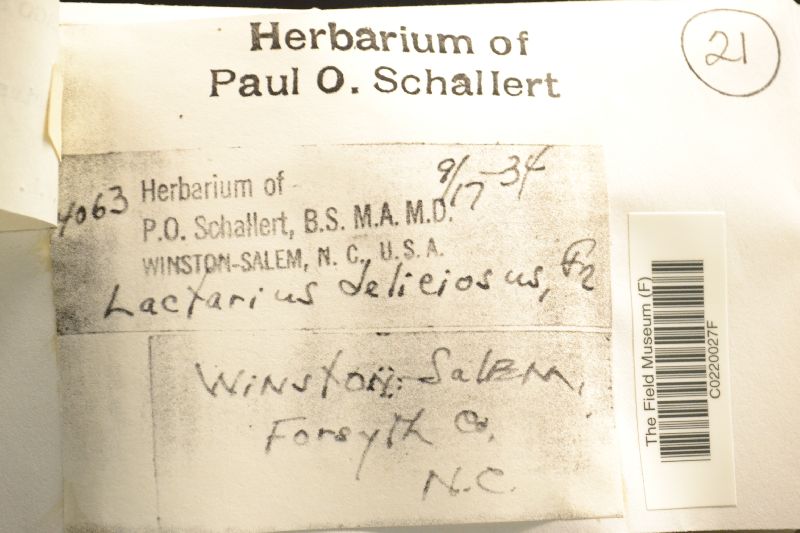 Herbarium of
Paul O. Schallert
21
4063
Herbarium of
9/17-34
P.O. Schallert, B.S. M.A. M.D.
WINSTON-SALEM, N. C., U. S. A.
Lactarius deliciosus, Fr
Winston-Salem,
Forsyth Co,
N.C.
The Field Museum (F)
C0220027F